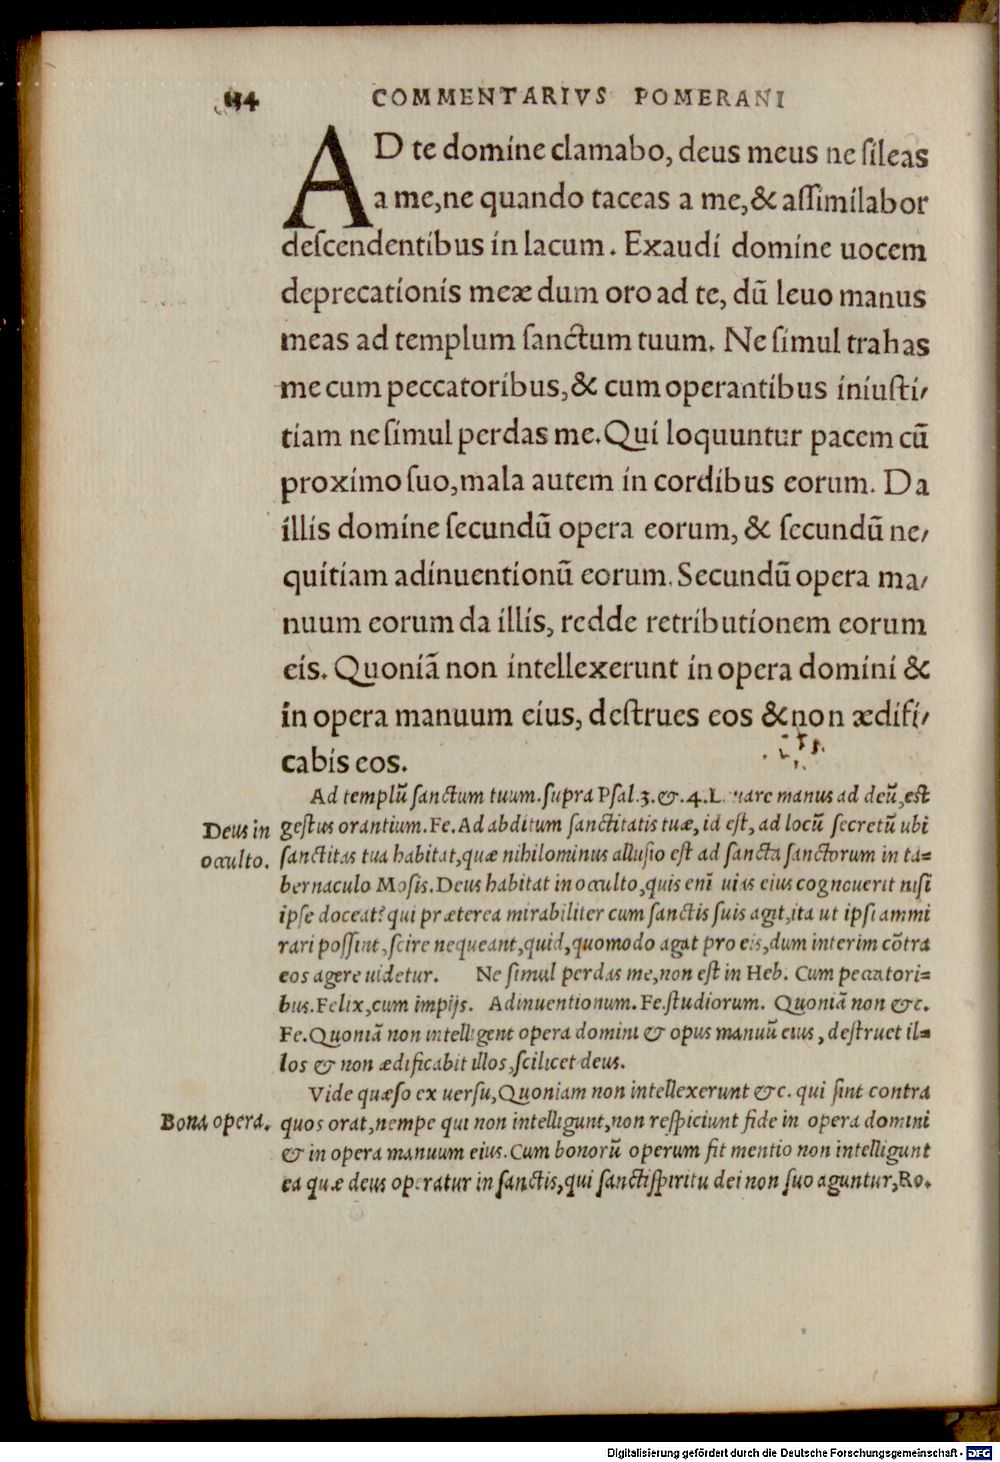 154 COMMENTARIVS POMERANI
AD te domine clamabo, deus meus ne ſileas
a me, ne quando taceas a me, & aſſimilabor
deſcendentibus in lacum. Exaudi domine uocem
deprecationis meæ dum oro ad te, dū leuo manus
meas ad templum ſanctum tuum. Ne ſimul trahas
me cum peccatoribus, & cum operantibus iniuſti/
tiam ne ſimul perdas me. Qui loquuntur pacem cū
proximo ſuo, mala autem in cordibus eorum. Da
illis domine ſecundū opera eorum, & ſecundū ne/
quitiam adinuentionū eorum. Secundū opera ma/
nuum eorum da illis, redde retributionem eorum
eis. Quoniā non intellexerunt in opera domini &
in opera manuum eius, deſtrues eos & non ædifi/
cabis eos.
Ad templū ſanctum tuum. ſupra Pſal. 3. &. 4. manus ad deū, eſt
Deus in geſtus orantium. Fe. Ad abditum ſanctitatis tuæ, id eſt, ad locū ſecretū ubi
occulto. ſanctitas tua habitat, quæ nihilominus alluſio eſt ad ſancta ſanctorum in ta=
bernaculo Moſis. Deus habitat in occulto, quis enī uias eius cognouerit niſi
ipſe doceat? qui præterea mirabiliter cum ſanctis ſuis agit, ita ut ipſi ammi
rari poſſint, ſcire nequeant, quid, quomodo agat pro eis, dum interim cōtra
eos agere uidetur. Ne ſimul perdas me, non eſt in Heb. Cum peccatori=
bus. Felix, cum impijs. Adinuentionum. Fe. ſtudiorum. Quoniā non &c.
Fe. Quoniā non intelligent opera domini & opus manuū eius, deſtruet il=
los & non ædificabit illos, ſcilicet deus.
Vide quæſo ex uerſu, Quoniam non intellexerunt &c. qui ſint contra
Bona opera. quos orat, nempe qui non intelligunt, non reſpiciunt fide in opera domini
& in opera manuum eius. Cum bonorū operum fit mentio non intelligunt
ea quæ deus operatur in ſanctis, qui ſancti ſpiritu dei non ſuo aguntur, Ro.
Digitalisierung gefördert durch die Deutsche Forschungsgemeinschaft - DFG